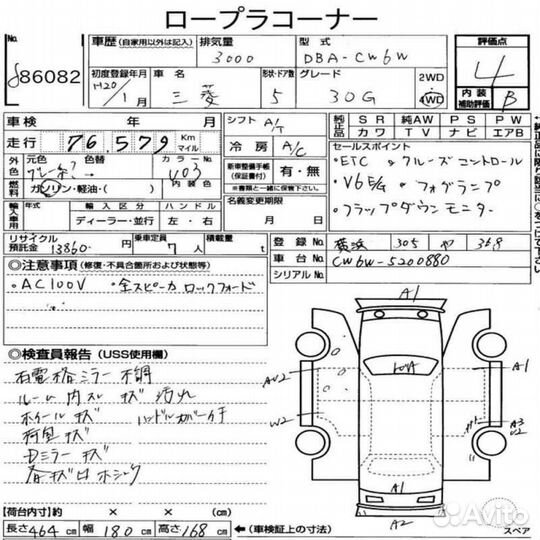 ロープラコーナー
No.
86082
車歴 (自家用以外は記入)
排気量
3000
型式
DBA-CW6W
評価点
4
内装
補助評価
B
初度登録年月
H20/1月
車名
三菱
形状・ドア数
5
グレード
30G
2WD
4WD
車検 年 月
シフト A/T
純正品 SR 純AW PS PW
カワ TV ナビ エアB
走行 76,579 Km マイル
冷房 A/C
セールスポイント
・ETC ・クルーズコントロール
・V6E/G ・フォグランプ
・フラップダウンモニター
外色 元色 色替 カラーNo.
V03
新車整備手帳
(保証書付)
有・無
燃料 ガソリン・軽油・( ) 内装色
名義変更期限
月 日
輸入車用 年式 輸入区分 ハンドル
ディーラー・並行 左・右
リサイクル預託金 13860 円
乗車定員 7人
積載量 t
登録No. 横浜 305 や 368
車台No. CW6W-5200880
シリアルNo.
◎注意事項 (修復・不具合箇所および状態等)
・AC100V ・全スピーカ ロックフォード
◎検査員報告 (USS使用欄)
ルーム内 スレ キズ 汚れ
ホイールキズ
ハンドルカバー付
荷室キズ
Dミラーキズ
A1
A1
A3
A1
A2
W2
【荷台内寸】約 × × (cm)
長さ 464 cm 幅 180 cm 高さ 168 cm
(車検証上の寸法)
スペア
Avito